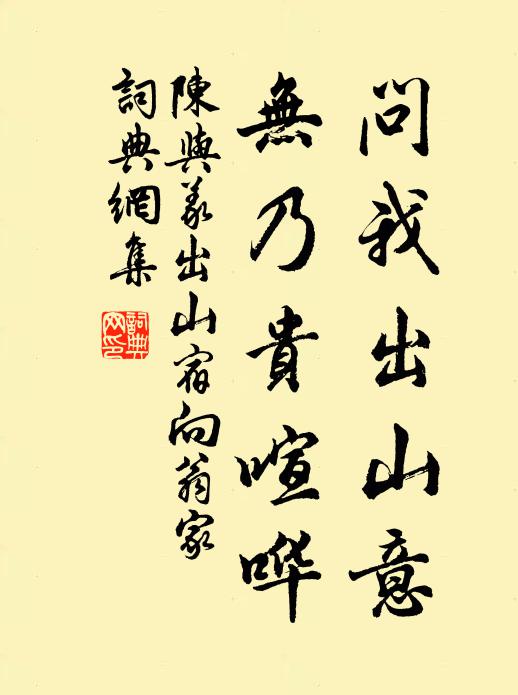 問我出山意
無乃貴喧哗
陳與義出山宿向翁家
詞典網集
詞典
网印